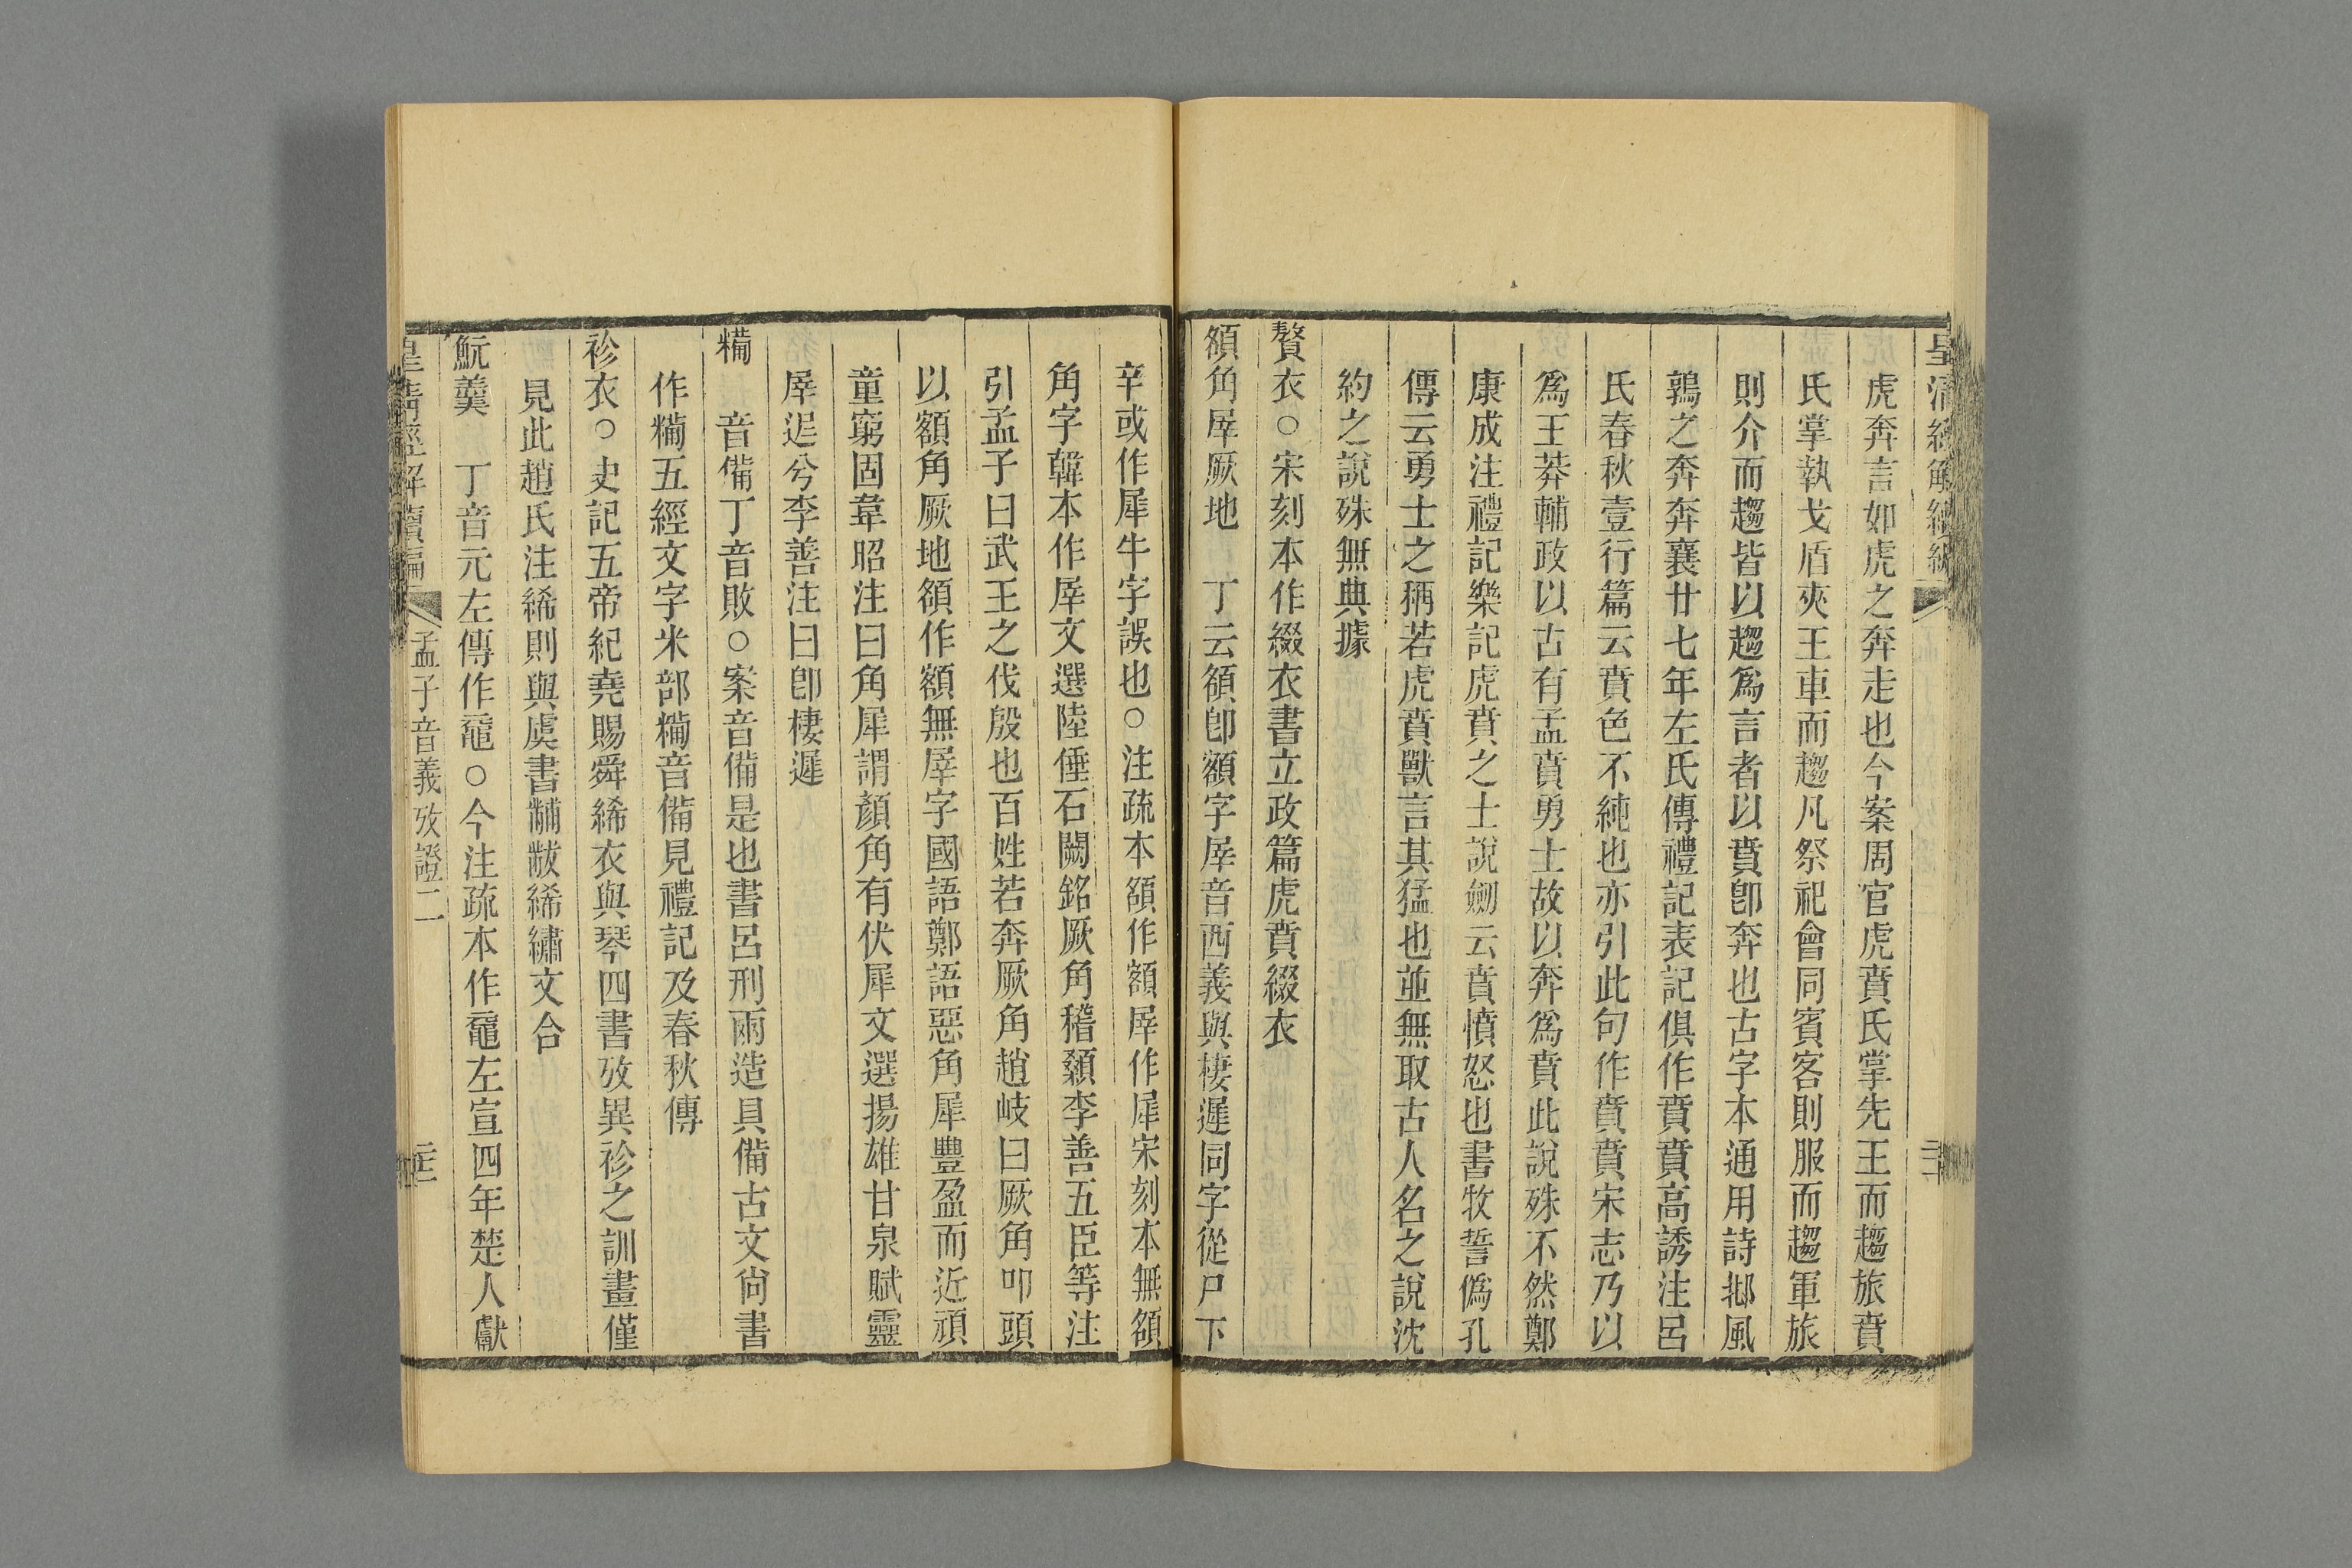 皇清經解續編
虎奔言如虎之奔走也今案周官虎賁氏掌先王而趨旅賁
氏掌執戈盾夾王車而趨凡祭祀會同賓客則服而趨軍旅
則介而趨皆以趨爲言者以賁卽奔也古字本通用詩鄘風
鶉之奔奔襄廿七年左氏傳禮記表記俱作賁賁高誘注呂
氏春秋壹行篇云賁色不純也亦引此句作賁賁宋志乃以
爲王莽輔政以古有孟賁勇士故以奔爲賁此說殊不然鄭
康成注禮記樂記虎賁之士說劒云賁憤怒也書牧誓僞孔
傳云勇士之稱若虎賁獸言其猛也並無取古人名之說沈
約之說殊無典據
贅衣○宋刻本作綴衣書立政篇虎賁綴衣
頟角犀厥地 丁云頟卽額字犀音西義與棲遲同字從尸下
辛或作犀牛字誤也○注疏本頟作額犀作犀宋刻本無頟
角字韓本作犀文選陸倕石闕銘厥角稽顙李善五臣等注
引孟子曰武王之伐殷也百姓若奔厥角趙岐曰厥角叩頭
以額角厥地頟作額無犀字國語鄭語惡角犀豐盈而近頑
童窮固韋昭注曰角犀謂顏角有伏犀文選揚雄甘泉賦靈
犀迡兮李善注曰卽棲遲
糒 音備丁音敗○案音備是也書呂刑兩造具備古文尙書
作糒五經文字米部糒音備見禮記及春秋傳
袗衣○史記五帝紀堯賜舜絺衣與琴四書攷異袗之訓畫僅
見此趙氏注絺則與虞書黼黻絺繡文合
魭羹 丁音元左傳作黿○今注疏本作黿左宣四年楚人獻
皇清經解續編 孟子音義攷證二